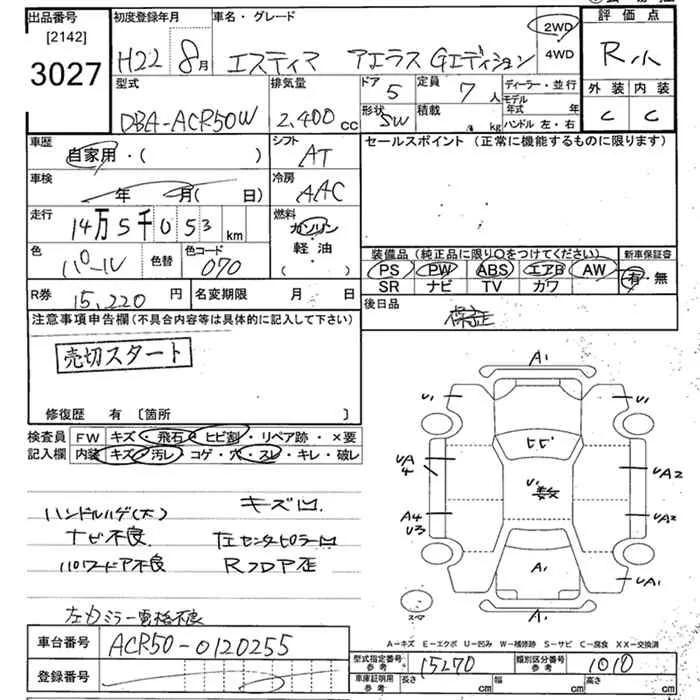 出品番号 初度登録年月 車名・グレード 評価点
[2142]
3027 H22 8月 エスティマ アエラス Gエディション 2WD 4WD R小
型式 排気量 ドア 定員 ディーラー・並行 外装 内装
DBA-ACR50W 2,400cc 5 7人 モデル年式 年 C C
形状 積載
SW kg ハンドル 左・右
車歴 シフト セールスポイント (正常に機能するものに限ります)
自家用・( ) AT
車検 冷房
年 月( 日) AAC
走行 燃料
14万5千053km ガソリン
軽油
( )
色 色替 色コード 装備品 (純正品に限り○をつけてください) 新車保証書
パール 070 PS PW ABS エアB AW 有・無
SR ナビ TV カワ
R券 15,220円 名変期限 月 日 後日品
注意事項申告欄 (不具合内容等は具体的に記入して下さい)
売切スタート
修復歴 有 〔箇所 〕
検査員 FW キズ・飛石・ヒビ割・リペア跡・×要
記入欄 内装 キズ・汚レ・コゲ・穴・スレ・キレ・破レ
ハンドルハゲ(大) キズ凹
ナビ不良 左センターピラー凹
パワードア不良 Rフロア歪
左カミラー電格不良
A1
U1 U1
ヒビ
UA4 UA2
U1
数
A4 UA2
U3
A1 UA1
スペア A1
A-キズ E-エクボ U-凹み W-補修跡 S-サビ C-腐食 XX-交換済
車台番号 ACR50-0120255
登録番号
型式指定番号 参考 15270 類別区分番号 参考 1010
車庫証明用 参考 長さ cm 幅 cm 高さ cm